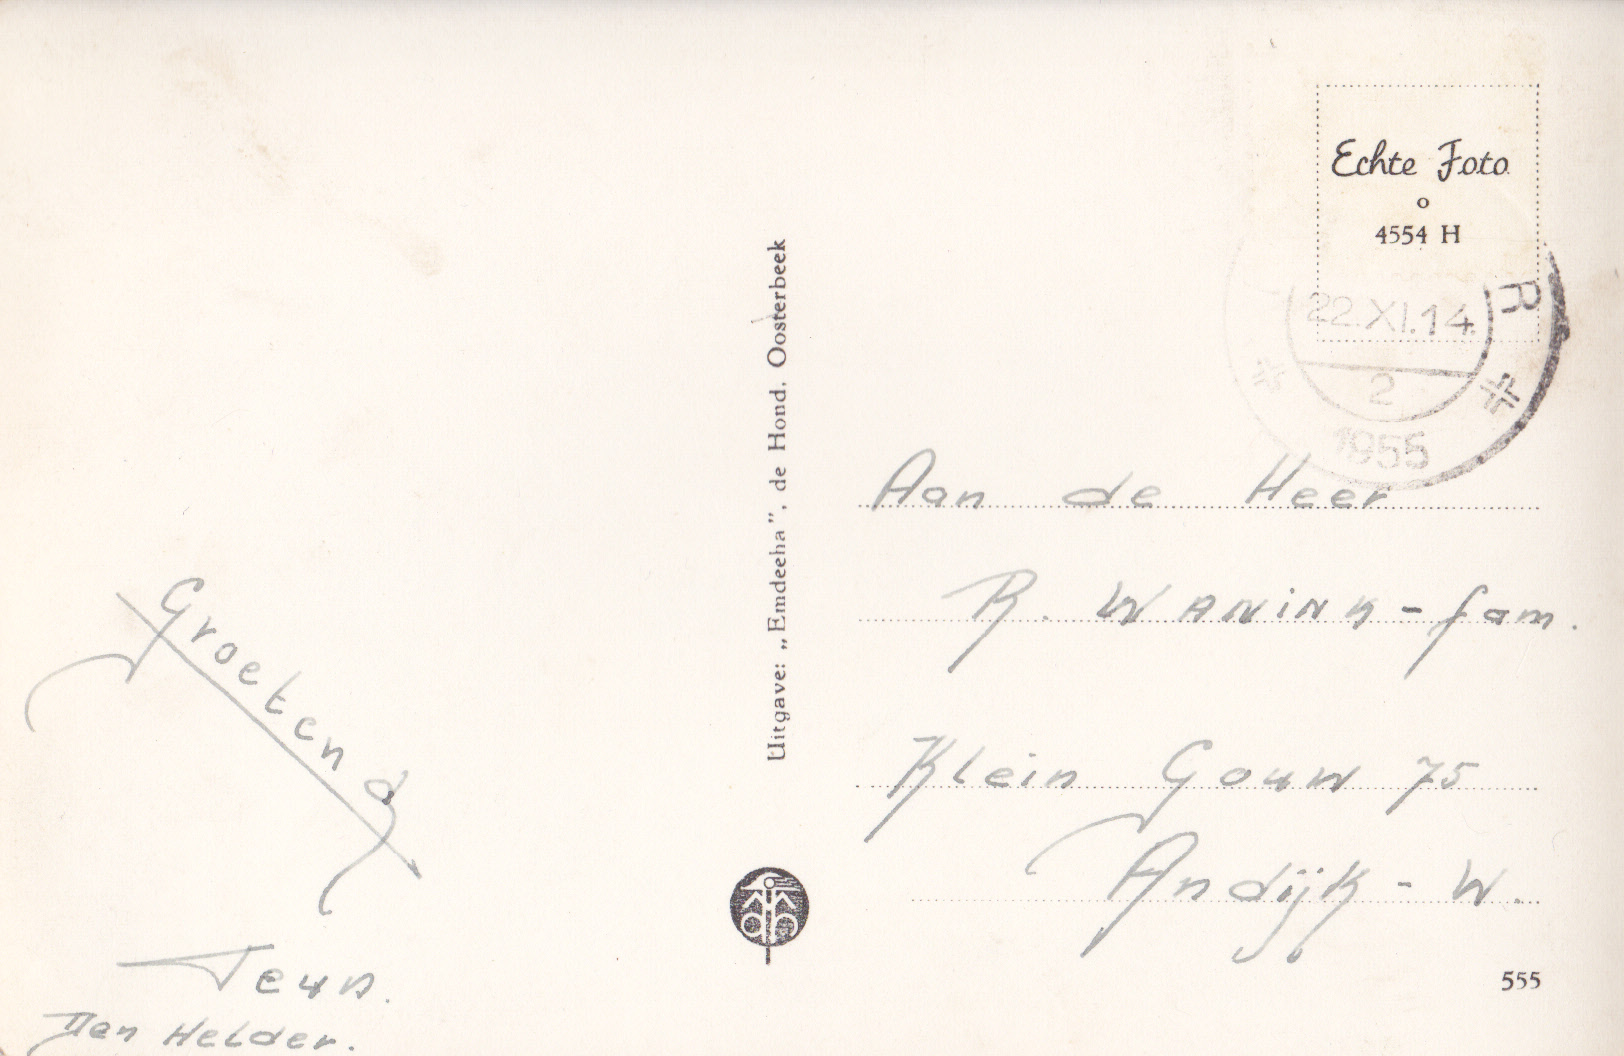 Echte Foto
o
4554 H
R
22.XI.14.
2
1955
Uitgave: „Emdeeha”, de Hond, Oosterbeek
Aan de Heer
R. WANINK - fam.
Klein Gouw 75
Andijk - W.
Groeten
Teun.
Den Helder.
555